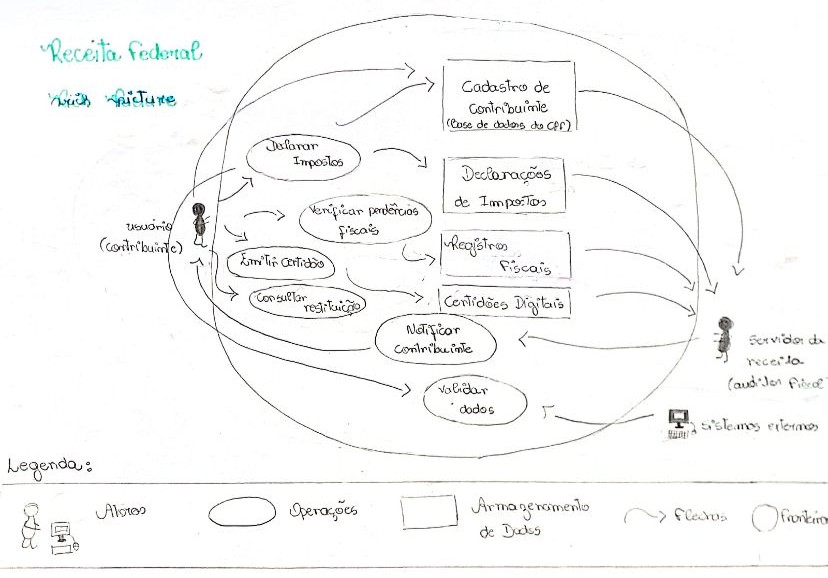 Receita Federal
Rich Picture
Cadastro de
Contribuinte
(base de dados do CPF)
Declarar
Impostos
Declarações
de Impostos
Verificar pendências
fiscais
usuário
(contribuinte)
Registros
Fiscais
Emitir certidão
Consultar
restituição
Certidões Digitais
Notificar
Contribuinte
Servidor da
receita
(auditor fiscal
Validar
dados
sistemas externos
Legenda:
Atores
Operações
Armazenamento
de Dados
Flechas
Fronteira